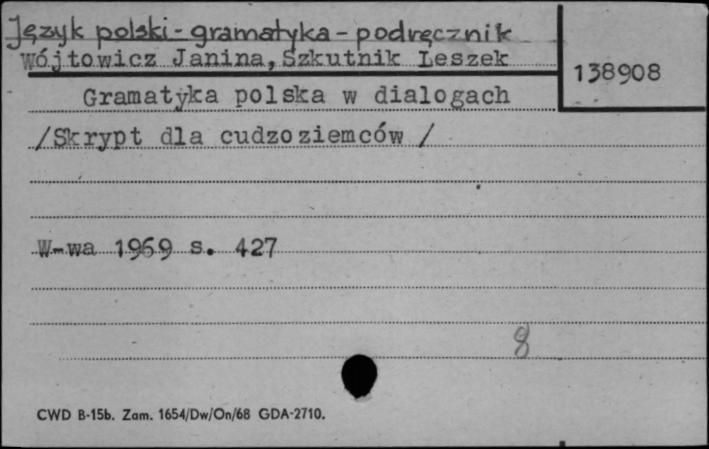 Język polski - gramatyka - podręcznik
Wójtowicz Janina, Szkutnik Leszek
138908
Gramatyka polska w dialogach
/Skrypt dla cudzoziemców /
W-wa 1969 s. 427
8
CWD B-15b. Zam. 1654/Dw/On/68 GDA-2710.